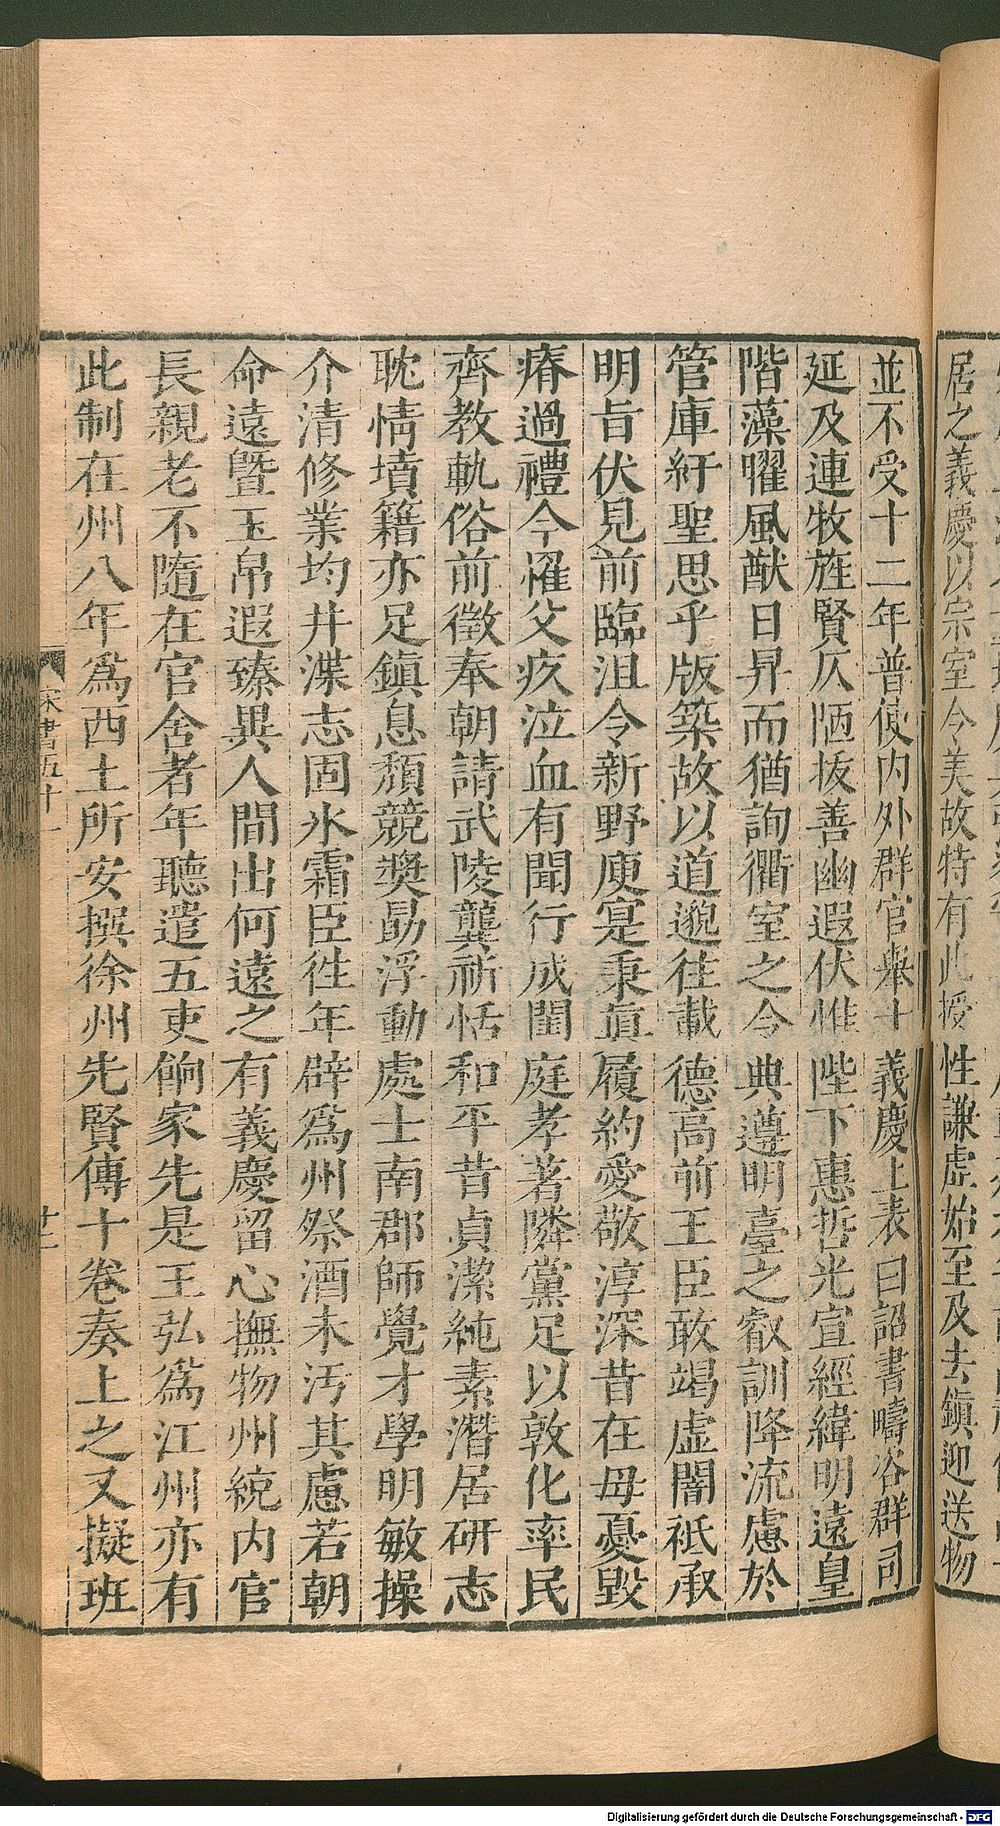 居之義慶以宗室令美故特有此授性謙虛始至及去鎮迎送物
並不受十二年普使內外群官舉士義慶上表曰詔書疇咨群司
延及連牧旌賢仄陋拔善幽遐伏惟陛下惠哲光宣經緯明遠皇
階藻曜風猷日昇而猶詢衢室之令典遵明臺之叡訓降流慮於
管庫紆聖思乎版築故以道邈往載德高前王臣敢竭虛闇祇承
明旨伏見前臨沮令新野庾寔秉真履約愛敬淳深昔在母憂毀
瘠過禮今罹父疚泣血有聞行成閨庭孝著隣黨足以敦化率民
齊教軌俗前徵奉朝請武陵龔祈恬和平昔貞潔純素潛居研志
耽情墳籍亦足鎮息頹競獎勗浮動處士南郡師覺才學明敏操
介清修業均井渫志固氷霜臣徃年辟為州祭酒未汚其慮若朝
命遠暨玉帛遐臻異人間出何遠之有義慶留心撫物州統內官
長親老不隨在官舍者年聽遣五吏餉家先是王弘為江州亦有
此制在州八年為西土所安撰徐州先賢傳十卷奏上之又擬班
宋書五十一
廿二
Digitalisierung gefördert durch die Deutsche Forschungsgemeinschaft - DFG